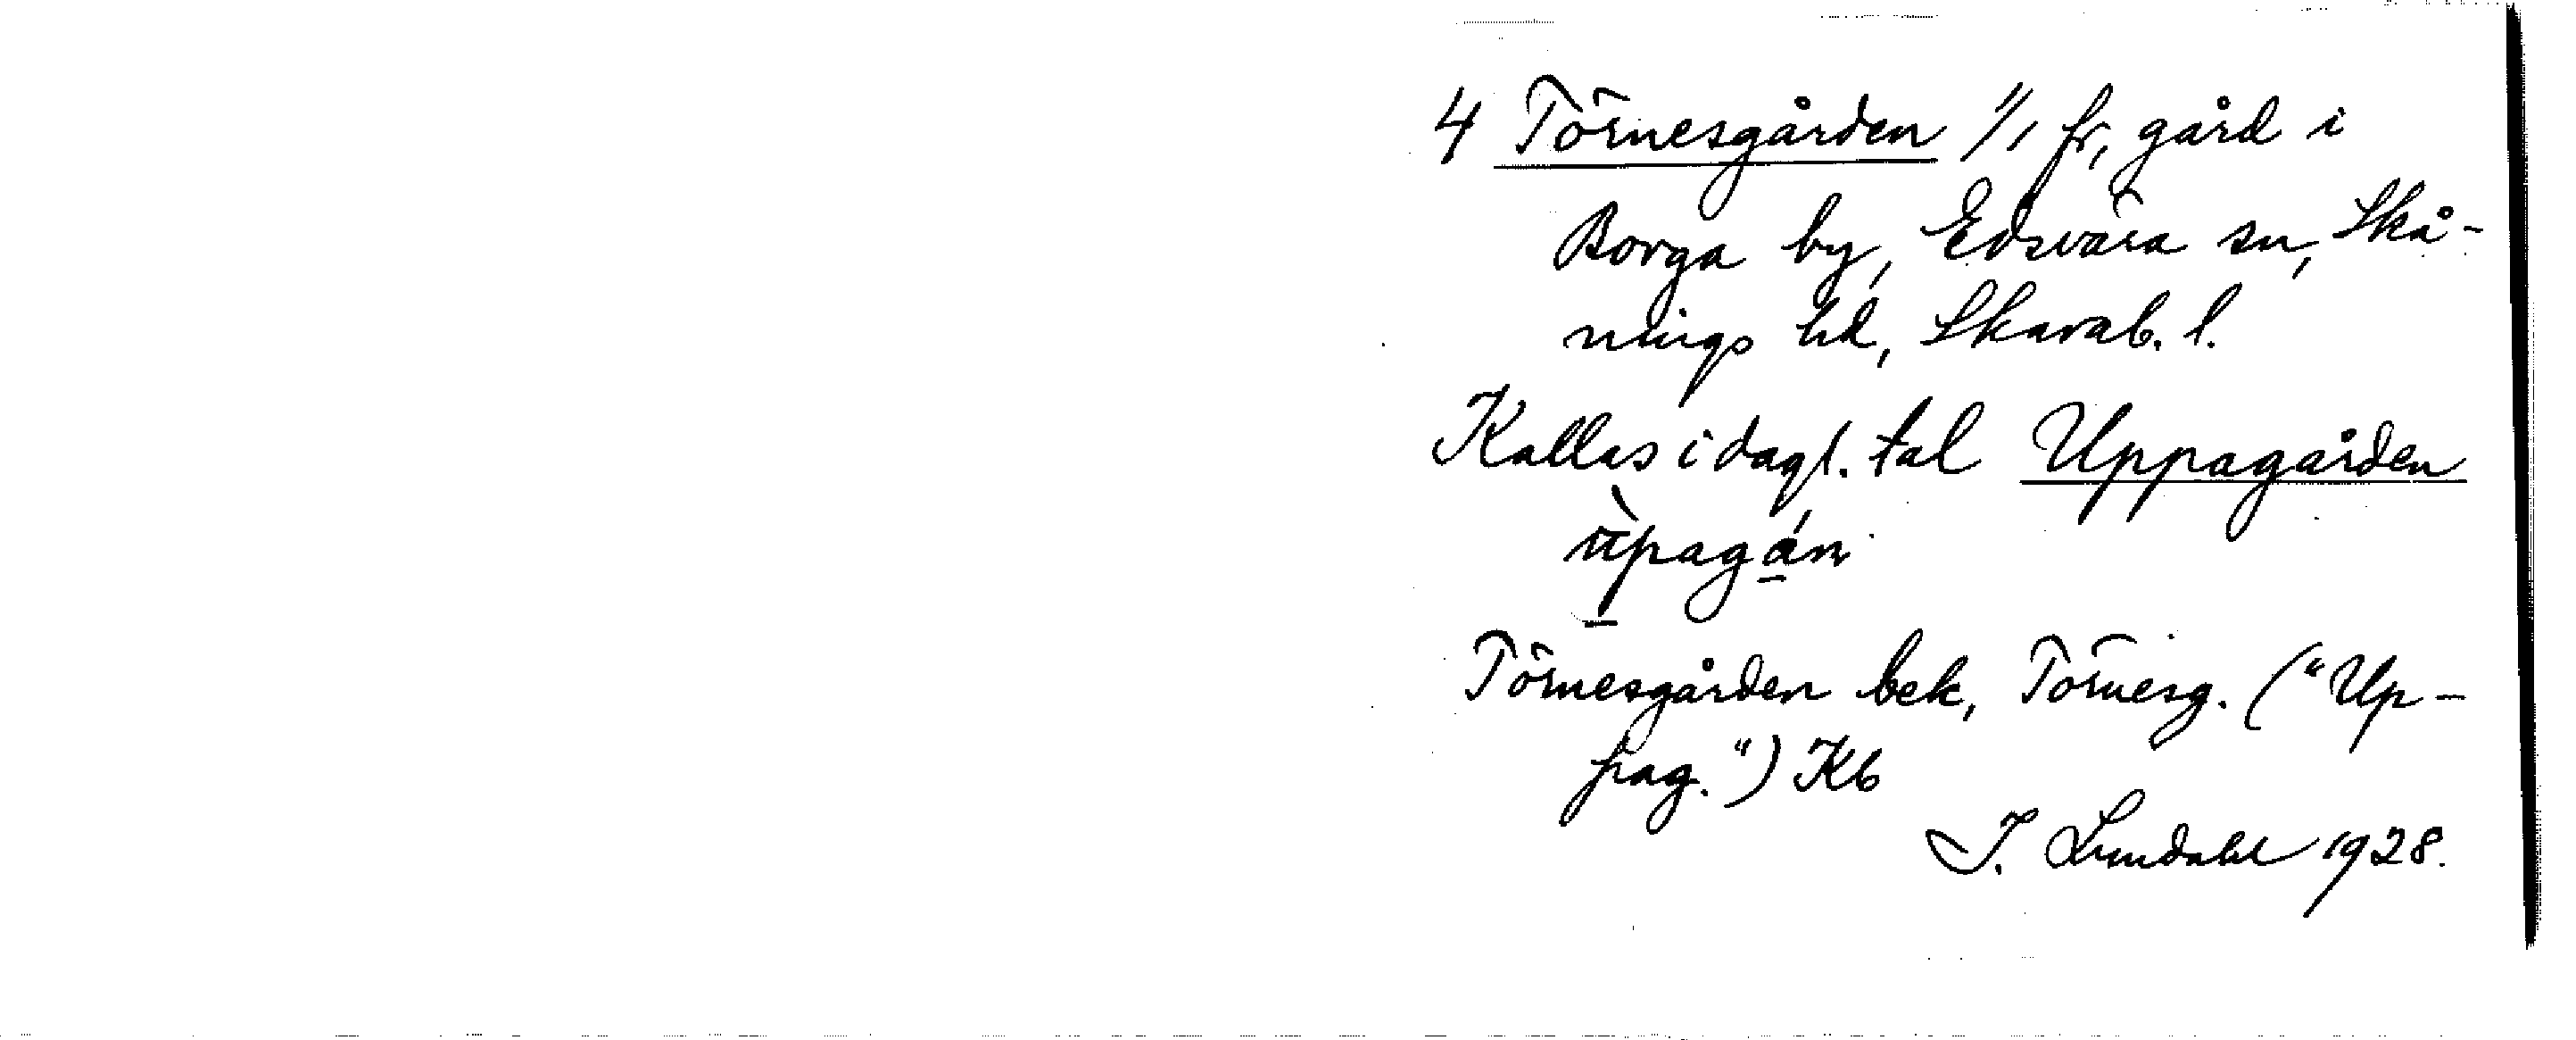 4 Törnesgården 1/1 fr, gård i
Borga by, Edsvära sn, Skå-
nings hd, Skarab. l.
Kallas i dagl. tal Uppagården
ùpagán
Törnesgården bek, Törnesg. ("Up-
pag.") Kb
I. Lundahl 1928.